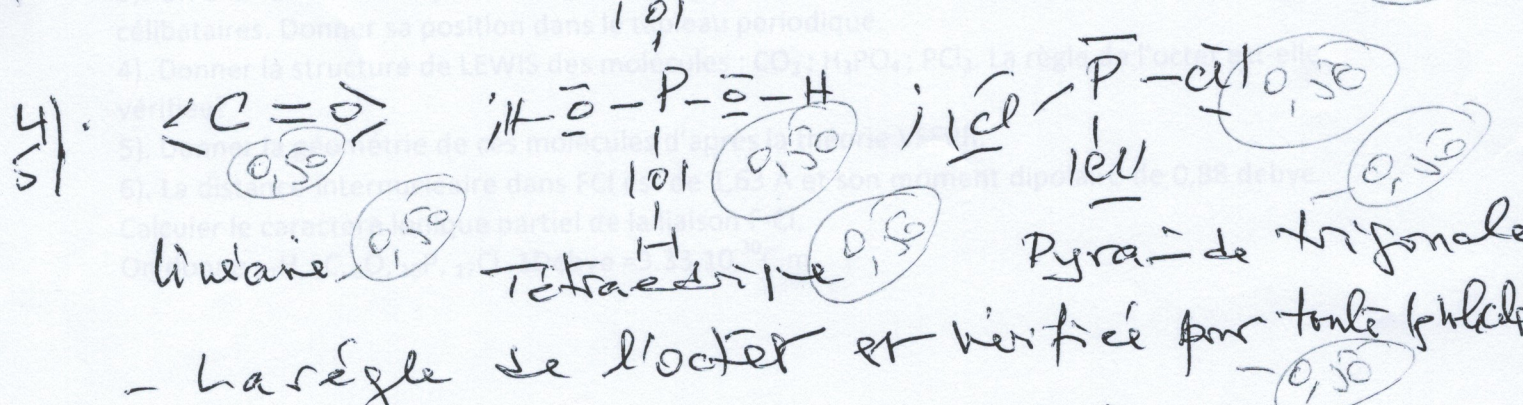 célibataires. Donner sa position dans le tableau périodique.
4). Donner la structure de LEWIS des molécules : CO₂ ; H₃PO₄ ; PCl₃. La règle de l'octet est-elle
vérifiée
5). Donner la géométrie de ces molécules d'après la théorie
6). La distance intermoléculaire dans FCl est de 1,63 Å et son moment dipolaire de 0,88 debye.
Calculer le caractère ionique partiel de la liaison F-Cl.
|O|
4). <C=O> ; H-O-P-O-H ; |Cl-P-Cl|
5) 0,50 0,50 0,50
|O| |Cl|
H
0,50 0,50 0,50
linéaire Tétraédrique Pyramide trigonale
- La règle de l'octet est vérifiée pour toute
0,50